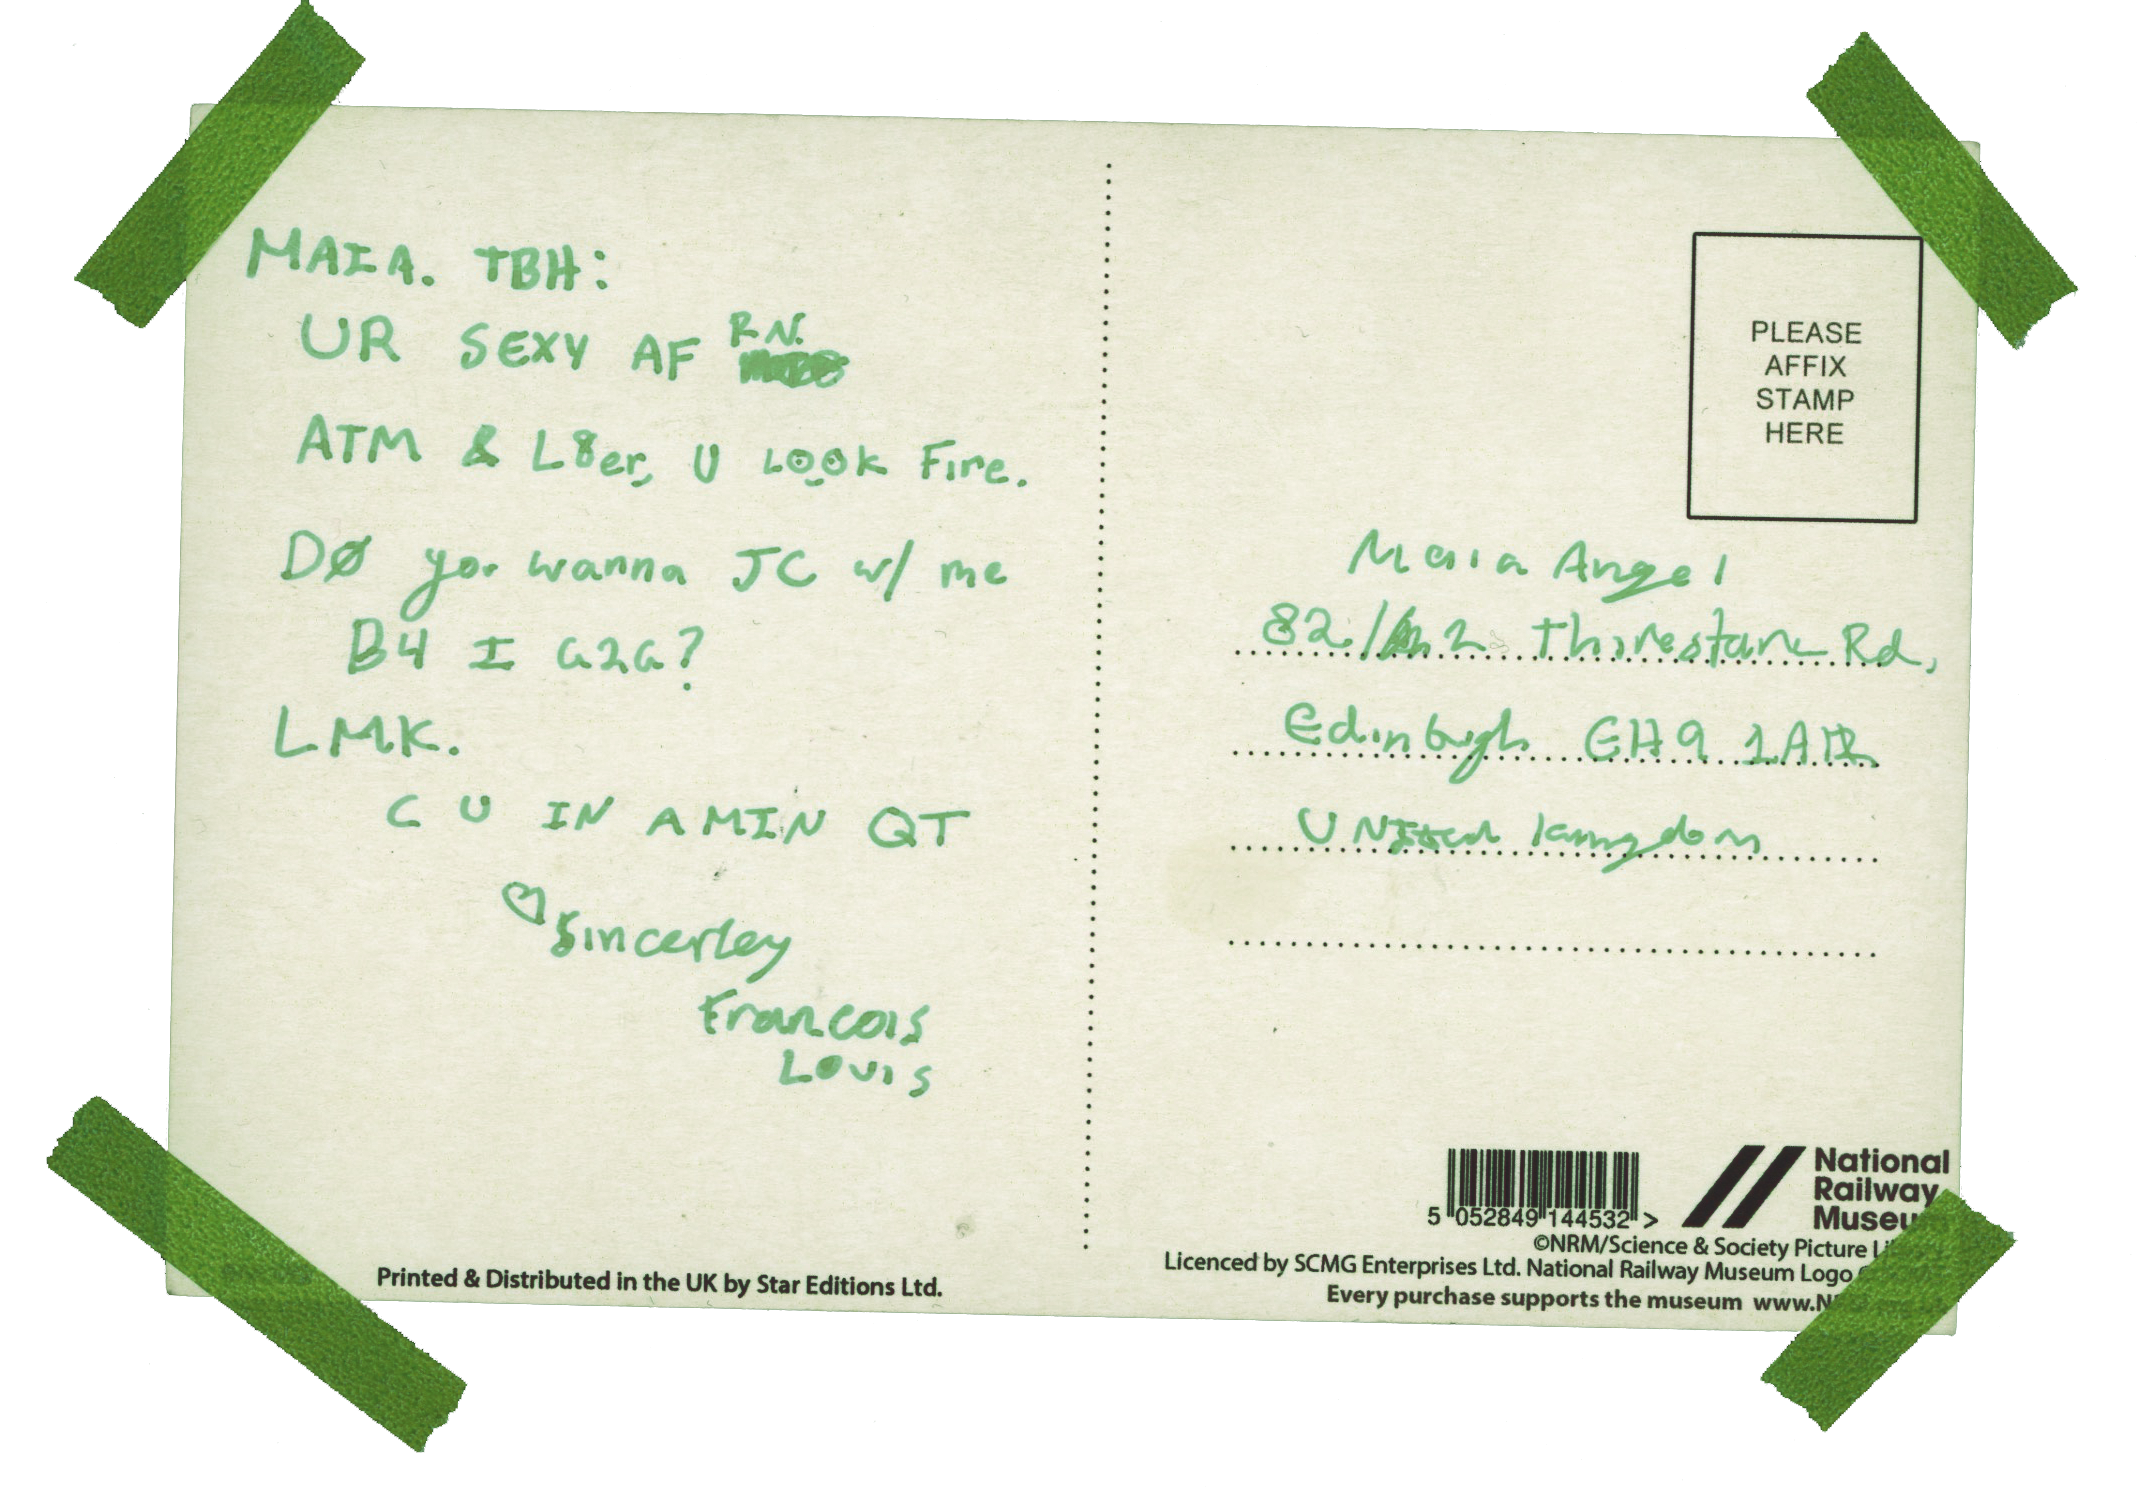 MAIA. TBH:
UR SEXY AF RN.
ATM & L8er, U LOOK Fire.
DØ you wanna JC w/ me
B4 I G2G?
LMK.
C U IN A MIN QT
♡ Sincerley
Francois
Louis
PLEASE
AFFIX
STAMP
HERE
Maia Angel
82/2 Thirestane Rd,
Edinburgh EH9 1AR
UNited Kingdom
National
Railway
Museum
5 052849 144532 >
©NRM/Science & Society Picture
Licenced by SCMG Enterprises Ltd. National Railway Museum Logo
Every purchase supports the museum www.N
Printed & Distributed in the UK by Star Editions Ltd.